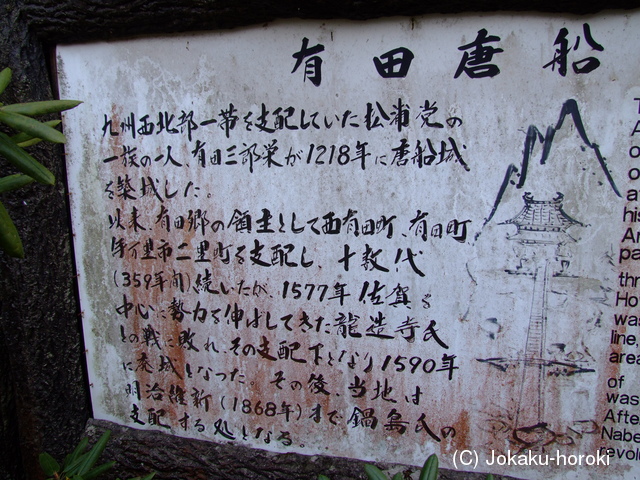 有田唐船
九州西北部一帯を支配していた松浦党の
一族の一人、有田三郎栄が1218年に唐船城
を築城した。
以来、有田郷の領主として西有田町、有田町
伊万里市二里町を支配し、十数代
(359年間)続いたが、1577年佐賀を
中心に勢力を伸ばしてきた龍造寺氏
との戦に敗れ、その支配下となり1590年
に廃城となった。その後、当地は
明治維新(1868年)まで鍋島氏の
支配する処となる。
his
thr
Ho
was
line,
area
of
was
After
Nabe
evolu
(C) Jokaku-horoki